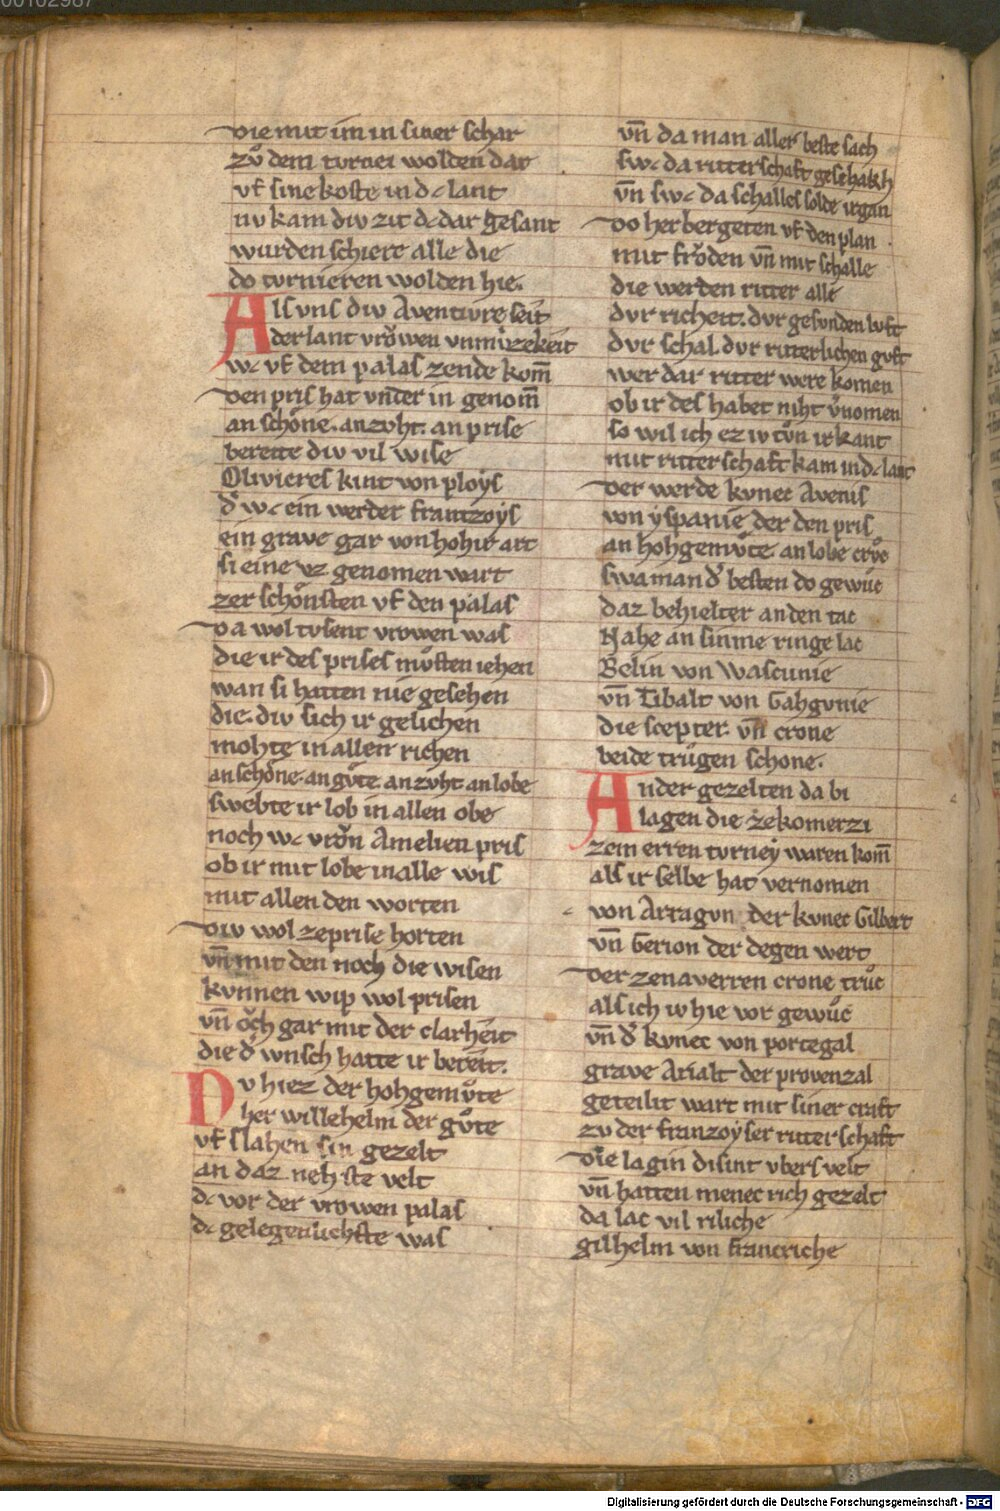 00102987
Die mit im in siner schar
zuͦ dem turnei wolden dar
vf sine koste in dc lant
nv kam div zit dc dar gesant
wurden schiere alle die
do turnieren wolden hie.
Als vns div Aventivre seit
der lant vroͮwen vnmuͤzekeit
wc vf dem palas zende kom̄
Den pris hat vnter in genom̄
an schoͤne. an zvht. an prise
bereite div vil wise
Olivieres kint von ploẏs
dˀ wc ein werder frantzoẏs
ein grave gar von hohir art
si eine vz genomen wart
zer schoͤnsten vf den palas
Da wol tvsent vrowen was
die ir des prises mvͦsten iehen
wan si hatten nie gesehen
die. div sich ir gelichen
mohte in allen richen
an schoͤne. an gvͤte. an zvht an lobe
swebte ir lob in allen obe
noch wc vroͮn Amelien pris
ob ir mit lobe in alle wis
mit allen den worten
Div wol ze prise horten
vn̄ mit den noch die wisen
kvnnen wip wol prisen
vn̄ oͮch gar mit der clarheit
die dˀ wnsch hatte ir bereit.
Nv hiez der hohgemvͦte
her willehelm der gvͦte
vf slahen sin gezelt
an daz nehste velt
dc vor der vrowen palas
dc gelegenlichste was
vn̄ da man aller beste sach
swc da ritterschaft geschakh
vn̄ swc da schalles solde irgan
Do herbergeten vf den plan
mit froͮden vn̄ mit schalle
die werden ritter alle
dvr richeit. dvr gesvnden lvft
dvr schal. dvr ritterlichen gvft
wer dar ritter were komen
ob ir des habet niht vˀnomen
so wil ich ez iv tvͦn irkant
mit ritterschaft kam in dc lant
Der werde kvnec Avenis
von ẏspanie der den pris
an hohgemvͤte. an lobe trvͦc
swa man dˀ besten do gewuͦc
daz behielter an den tac
Nahe an sinme ringe lac
Belin von Wascunie
vn̄ Tibalt von Gahgvnie
die scepter. vn̄ crone
beide truͦgen schone.
Ander gezelten da bi
lagen die ze komerzi
zem erren turneẏ waren kom̄
als ir selbe hat vernomen
von Arragvn der kvnec Gilbert
vn̄ Gerion der degen wert
Der ze naverren crone truͦc
als ich iv hie vor gewuͦc
vn̄ dˀ kvnec von portegal
grave Arialt der provenzal
geteilit wart mit siner craft
zv der franzoẏser ritterschaft
Die lagin disint vbers velt
vn̄ hatten menec rich gezelt
da lac vil riliche
gilhelm von francriche
Digitalisierung gefördert durch die Deutsche Forschungsgemeinschaft - DFG